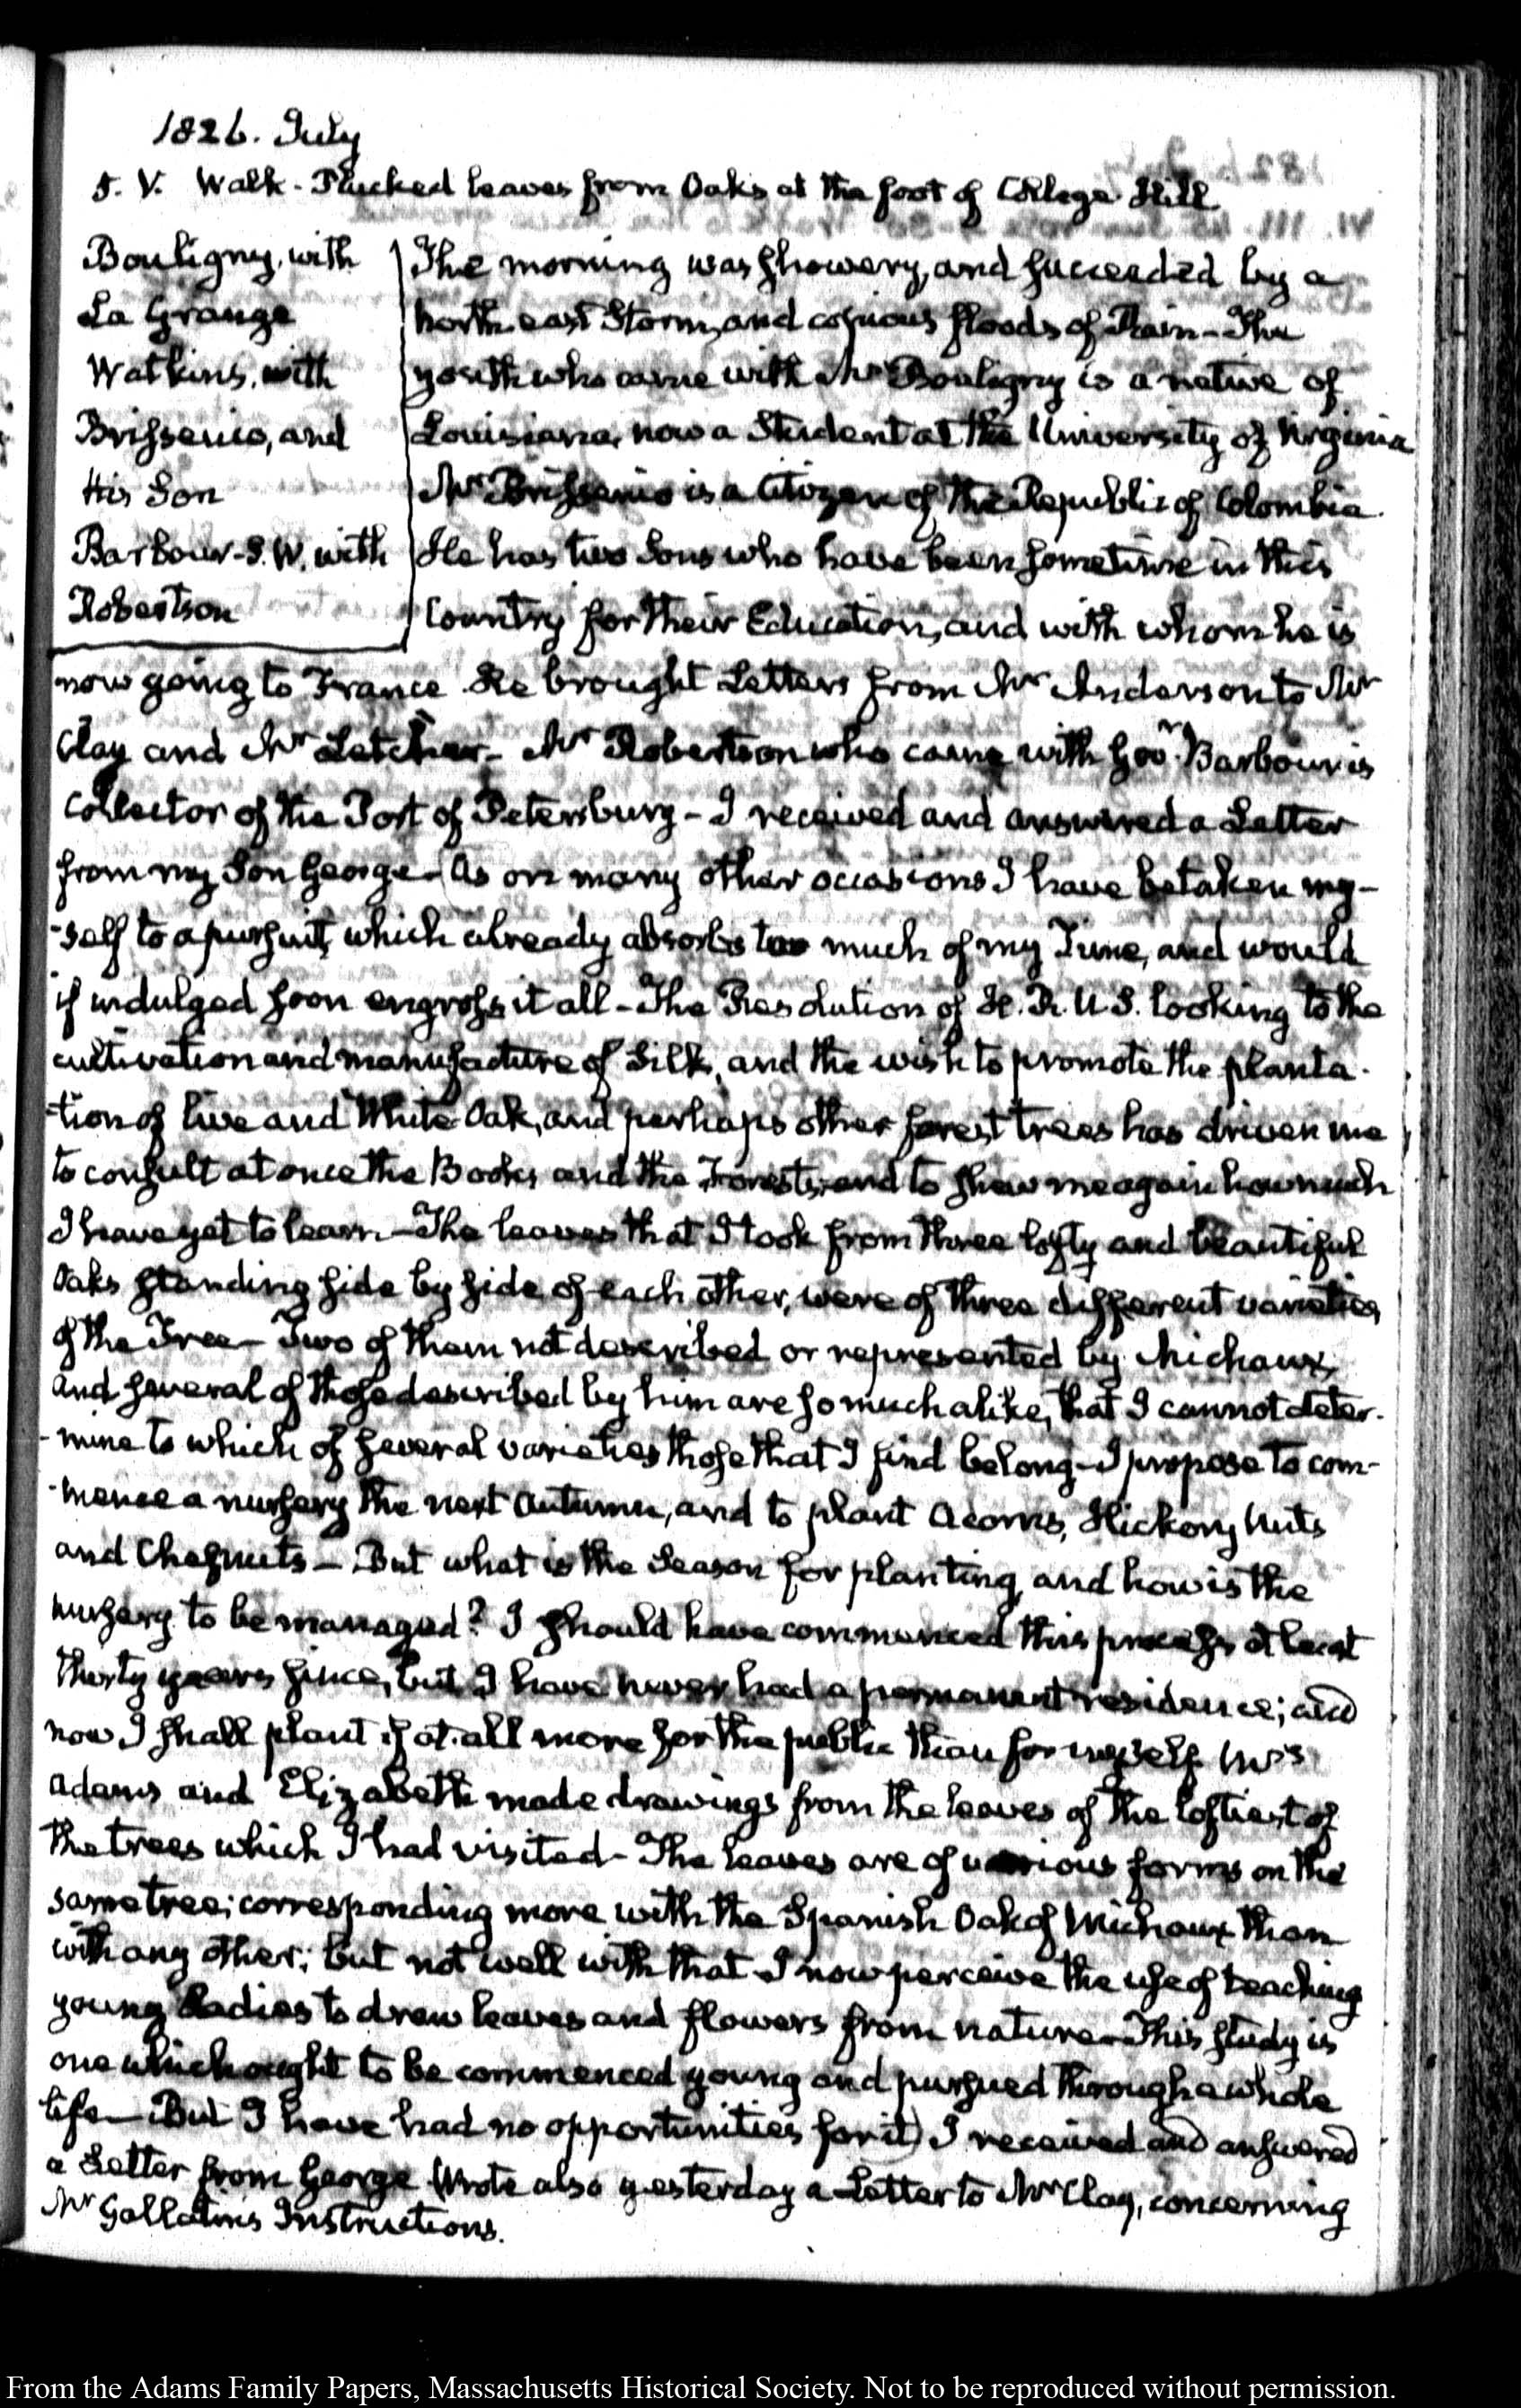 1826. July
5. V. Walk - Plucked leaves from Oaks at the foot of College Hill
Bouligny, with
La Grange
Watkins, with
Brissenio, and
His Son
Barbour-S.W. with
Robertson
The morning was showery, and succeeded by a
north-east Storm, and copious floods of Rain - The
youth who came with Mr Bouligny is a native of
Louisiana, now a Student at the University of Virginia
Mr Brissenio is a Citizen of the Republic of Colombia.
He has two Sons who have been sometime in this
Country for their Education, and with whom he is
now going to France. He brought Letters from Mr Anderson to Mr
Clay and Mr Letcher - Mr Robertson who came with Govr Barbour is
Collector of the Port of Petersburg - I received and answered a Letter
from my Son George - (As on many other occasions I have betaken my-
-self to a pursuit, which already absorbs too much of my Time, and would
if indulged soon engross it all - The Resolution of H. R. U.S. looking to the
cultivation and manufacture of Silk, and the wish to promote the planta-
-tion of live and White Oak, and perhaps other forest trees has driven me
to consult at once the Books and the Forests, and to shew me again how much
I have yet to learn - The leaves that I took from three lofty and beautiful
Oaks standing side by side of each other, were of three different varieties
of the Tree - Two of them not described or represented by Michaux,
and several of those described by him are so much alike, that I cannot deter-
-mine to which of several varieties those that I find belong - I propose to com-
-mence a nursery the next Autumn, and to plant Acorns, Hickory Nuts
and Chesnuts - But what is the Season for planting, and how is the
nursery to be managed? I should have commenced this process at least
thirty years since, but I have never had a permanent residence; and
now I shall plant if at all more for the public than for myself. Mrs
Adams and Elizabeth made drawings from the leaves of the loftiest of
the trees which I had visited - The leaves are of various forms on the
same tree; corresponding more with the Spanish Oak of Michaux than
with any other; but not well with that - I now perceive the use of teaching
young Ladies to draw leaves and flowers from nature - This study is
one which ought to be commenced young and pursued through a whole
life - But I have had no opportunities for it) I received and answered
a Letter from George (Wrote also yesterday a Letter to Mr Clay, concerning
Mr Gallatin's Instructions.
From the Adams Family Papers, Massachusetts Historical Society. Not to be reproduced without permission.